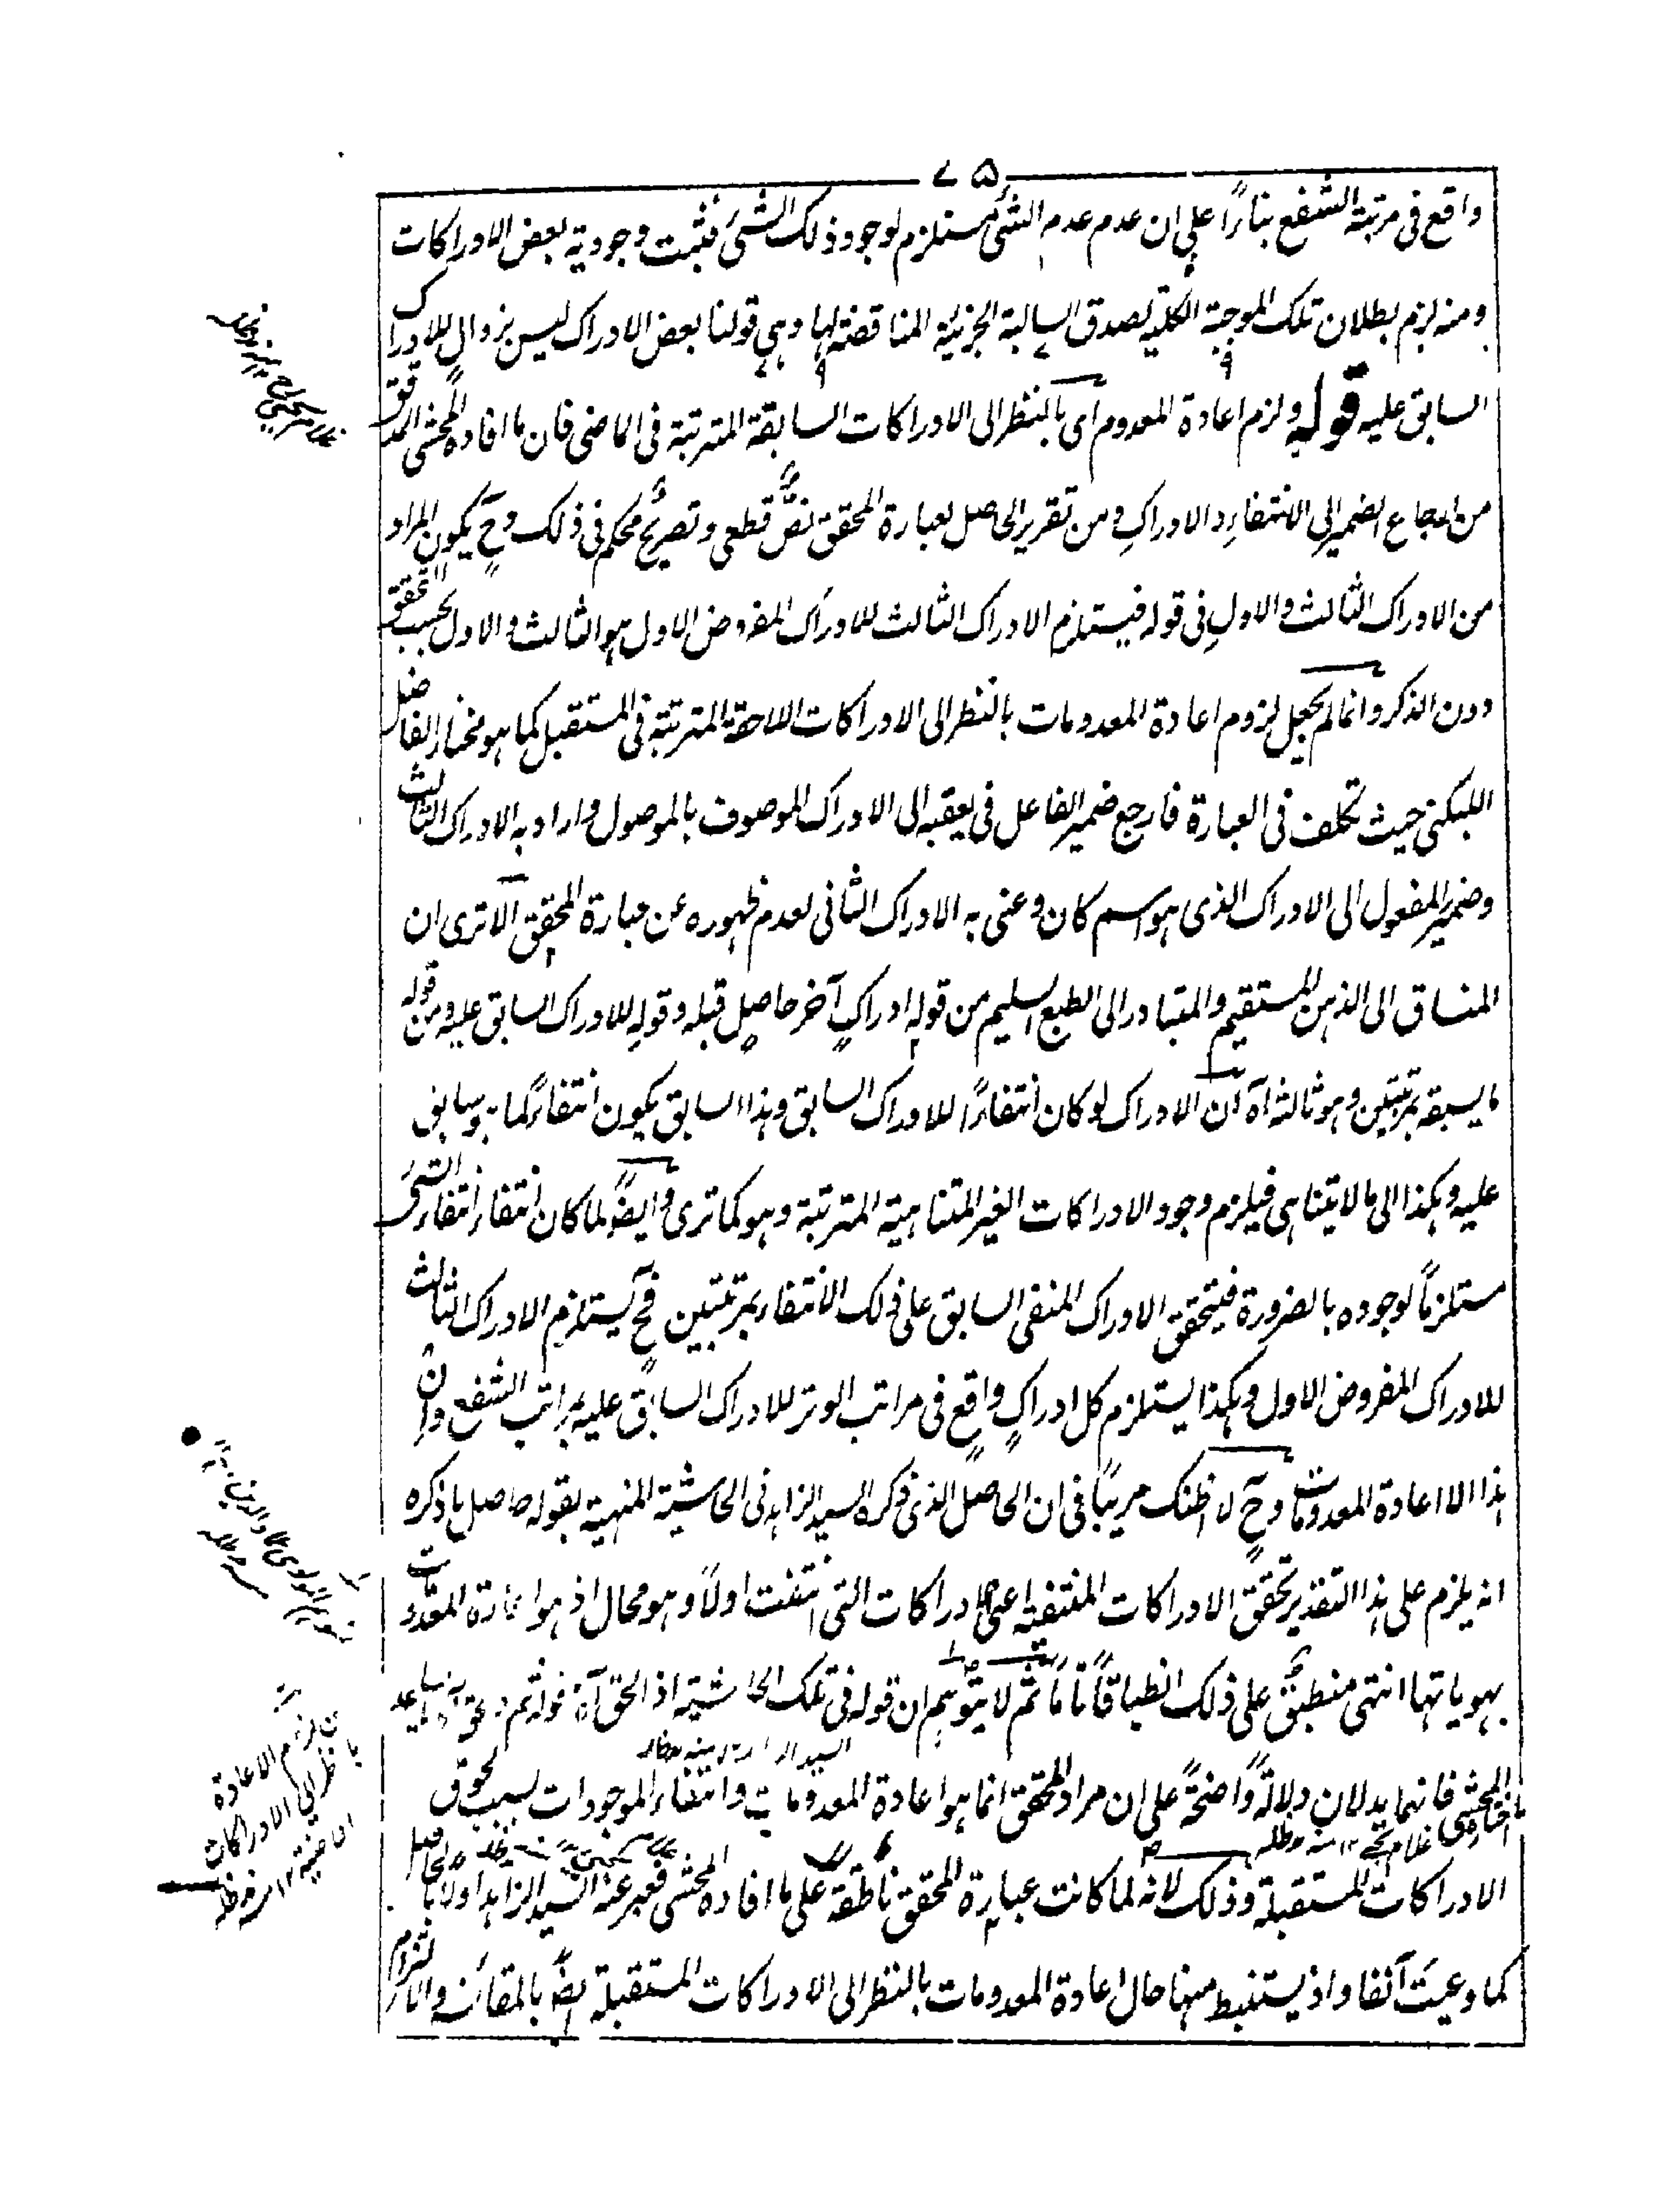 ٧٥
واقع فى مرتبة الشفع بناءً على ان عدم عدم الشئ مستلزم لوجود ذلك الشئ فثبت وجودية بعض الادراكات
ومنه لزم بطلان تلك الموجبة الكلية لصدق السالبة الجزئية المناقضة لها وهى قولنا بعض الادراك ليس بزوال للادراك
السابق عليه قوله ولزم اعادة المعدوم اى بالنظر الى الادراكات السابقة المترتبة فى الماضى فان ما افاده المحشى المدقق
من ارجاع الضمير الى الانتفاء والادراك ومن تقرير الحاصل لعبارة المحقق نصٌ قطعى وتصريحٌ محكم فى ذلك وح يكون المراد
من الادراك الثالث والاول فى قوله فيستلزم الادراك الثالث للادراك المفروض الاول هو الثالث والاول بحسب التحقق
دون الذكر وانما لم يجعل لزوم اعادة المعدومات بالنظر الى الادراكات اللاحقة المترتبة فى المستقبل كما هو مختار الفاضل
اللبكنى حيث تكلف فى العبارة فارجع ضمير الفاعل فى يعقبه الى الادراك الموصوف بالموصول واراد به الادراك الثالث
وضمير المفعول الى الادراك الذى هو اسم كان وعنى به الادراك الثانى لعدم ظهوره عن عبارة المحقق الا ترى ان
المنساق الى الذهن المستقيم والمتبادر الى الطبع السليم من قوله ادراكٍ آخر حاصلٍ قبله وقوله للادراك السابق عليه ومن قوله
ما يسبقه بمرتبتين وهو ثالثه آه ان الادراك لو كان انتفاءً للادراك السابق وهذا السابق يكون انتفاءً لما هو سابق
عليه وهكذا الى ما لا يتناهى فيلزم وجود الادراكات الغير المتناهية المترتبة وهو كما ترى وايضًا لما كان انتفاء انتفاء الشئ
مستلزمًا لوجوده بالضرورة فيتحقق الادراك المنفى السابق على ذلك الانتفاء بمرتبتين فح يستلزم الادراك الثالث
للادراك المفروض الاول وهكذا يستلزم كل ادراكٍ واقعٍ فى مراتب الوتر للادراك السابق عليه بمراتب الشفع وان
هذا الا اعادة المعدومات وح لا اظنك مريبًا فى ان الحاصل الذى ذكره السيد الزاهد فى الحاشية المنهية بقوله حاصل ما ذكره
انه يلزم على هذا التقدير تحقق الادراكات المنتفية اعنى الادراكات التى انتفت اولاً وهو محال اذ هو اعادة المعدومات
بهوياتها انتهى منطبقٌ على ذلك انطباقًا تامًا ثم لا يتوهم ان قوله فى تلك الحاشية اذ الحق آه قوله ثم
المحشى فانهما يدلان دلالةً واضحةً على ان مراد المحقق انما هو اعادة المعدومات وانتفاء الموجودات بسبب لحوق
الادراكات المستقبلة وذلك لانه لما كانت عبارة المحقق ناطقة على ما افاده المحشى فعبر عنه السيد الزاهد اولا بالحاصل
كما وعيت آنفا واذ يستنبط منها حال اعادة المعدومات بالنظر الى الادراكات المستقبلة ايضًا بالمقائسة والالتزام
لزوم الاعادة
بالنظر الى الادراكات
الماضية ١٢ منه